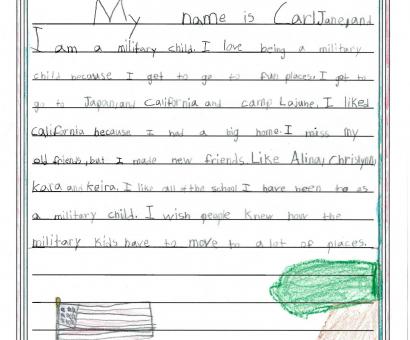 My name is CarlJane, and
I am a military child. I love being a military
child because I get to go to fun places. I get to
go to Japan, and California and camp Lajune. I liked
California because I had a big home. I miss my
old friends, but I made new friends. Like Alina, Chrislynn,
kara and keira. I like all of the school I have been to as
a military child. I wish people knew how the
military kids have to move to a lot of places.